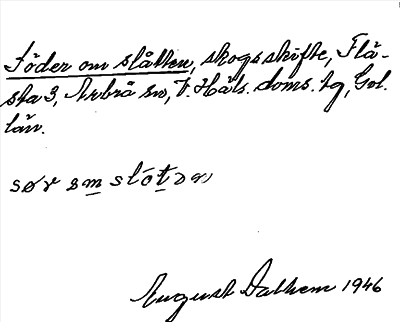 Söder om slåtten, skogsskifte, Flä-
sta 3, Arbrå sn, V. Häls. doms. tg, Gvl.
län.
sør om slótən
August Dalhem 1946